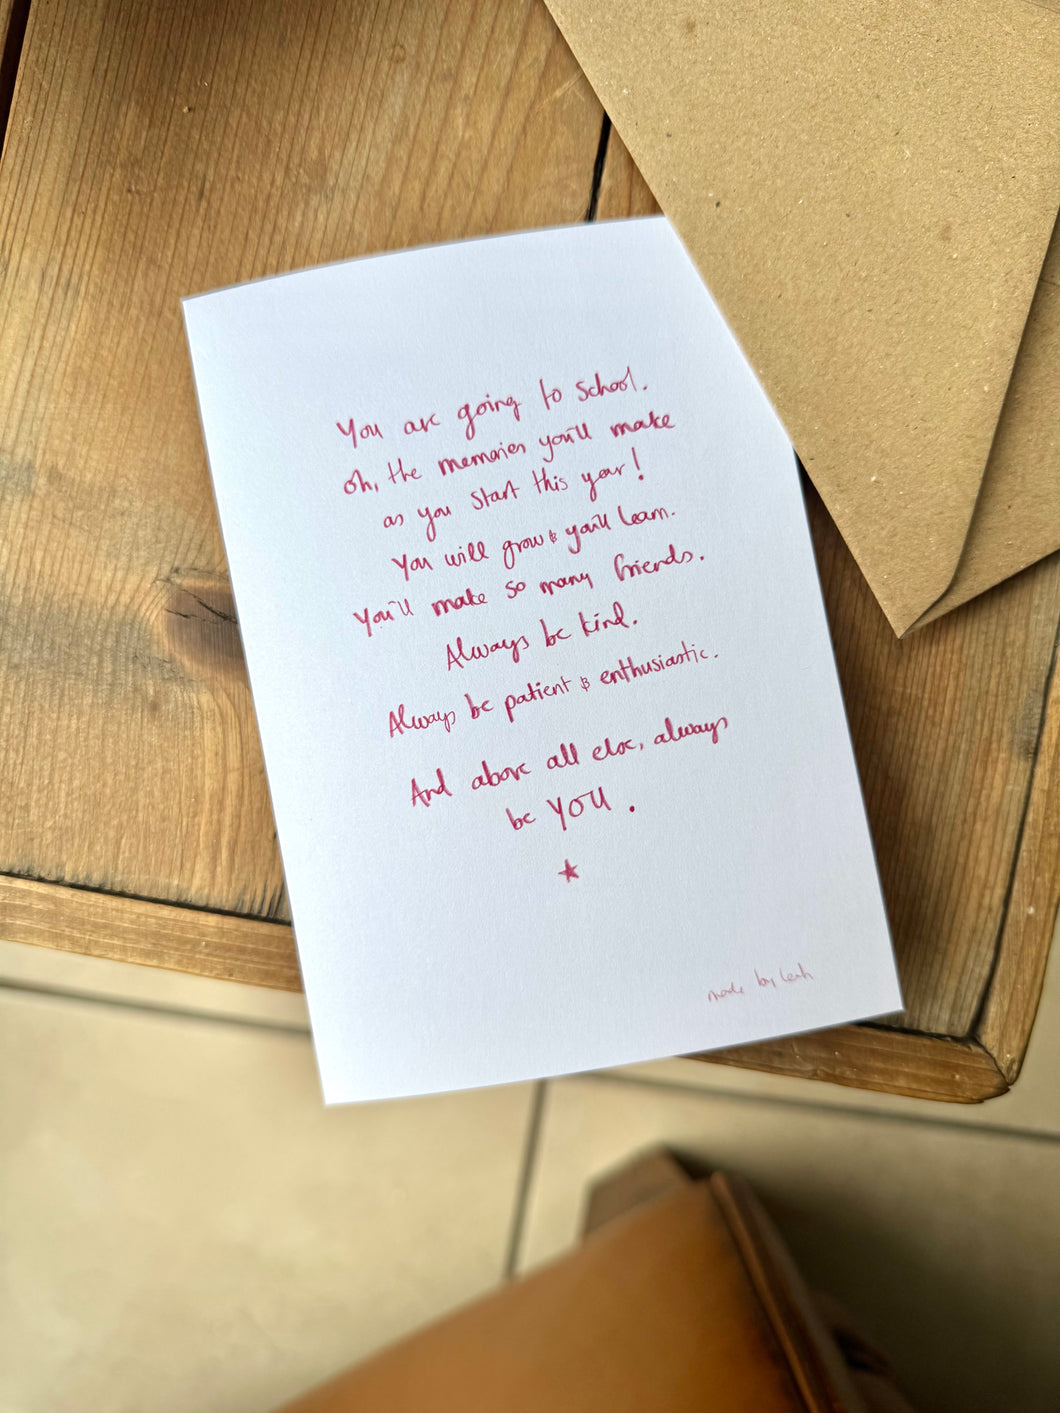 You are going to school.
Oh, the memories you'll make
as you start this year!
You will grow & you'll learn.
You'll make so many friends.
Always be kind.
Always be patient & enthusiastic.
And above all else, always
be YOU.
made by Leah